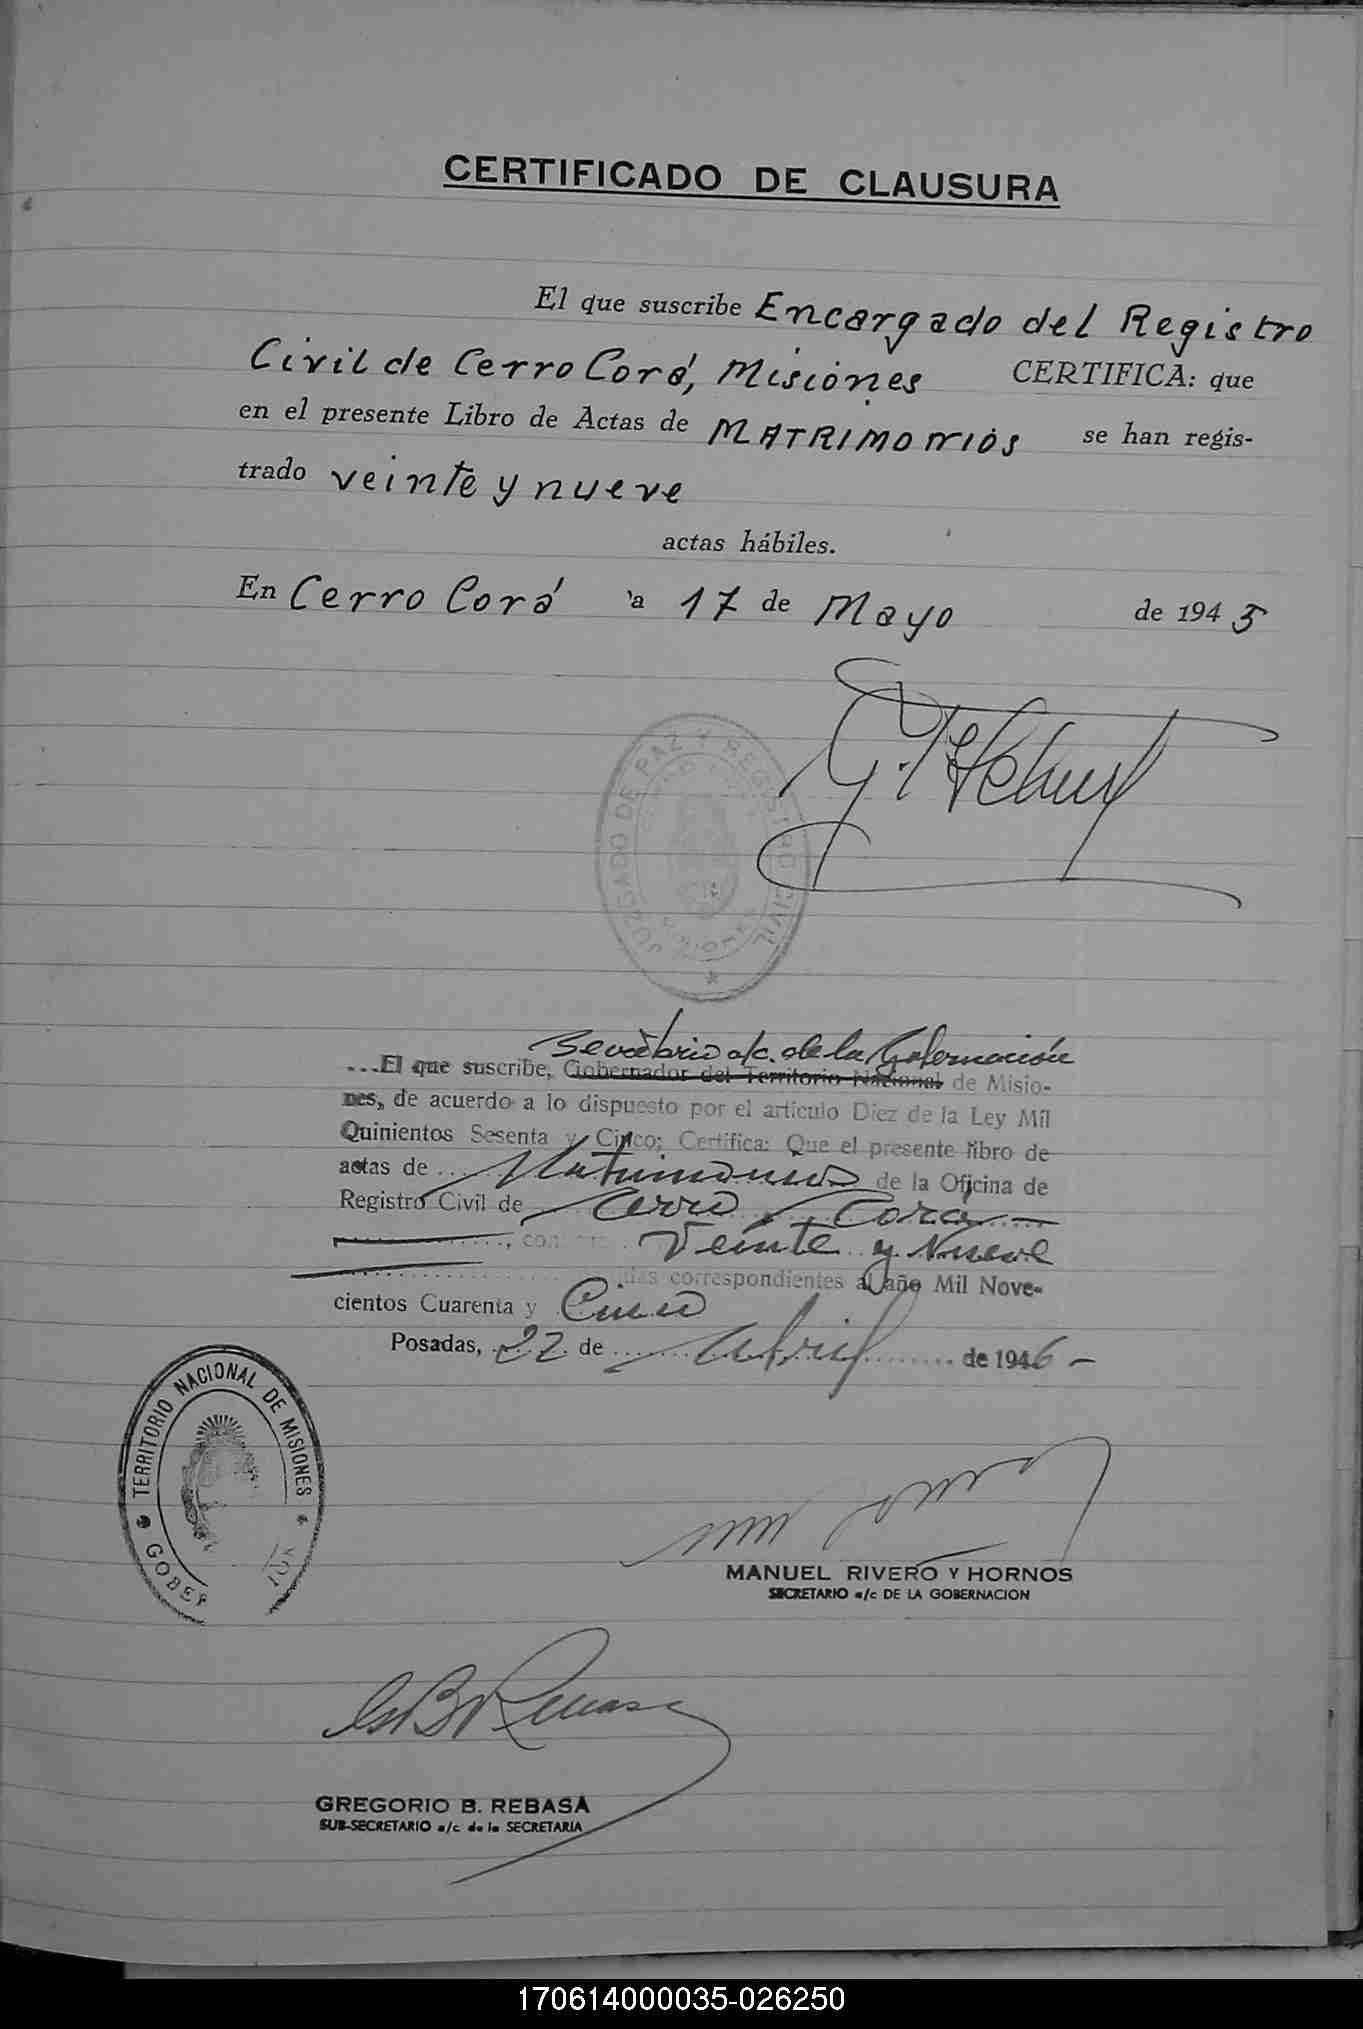 CERTIFICADO DE CLAUSURA
El que suscribe Encargado del Registro
Civil de Cerro Corá, Misiones CERTIFICA: que
en el presente Libro de Actas de MATRIMONIOS se han regis-
trado veinte y nueve
actas hábiles.
En Cerro Corá a 17 de Mayo de 1945
JUZGADO DE PAZ Y REGISTRO CIVIL
Secretario a/c. de la Gobernación
...El que suscribe, Gobernador del Territorio Nacional de Misio-
nes, de acuerdo a lo dispuesto por el artículo Diez de la Ley Mil
Quinientos Sesenta y Cinco; Certifica: Que el presente libro de
actas de Matrimonios de la Oficina de
Registro Civil de Cerro Corá
Veinte y Nueve
correspondientes al año Mil Nove-
cientos Cuarenta y Cinco
Posadas, 22 de Abril de 1946 -
TERRITORIO NACIONAL DE MISIONES
MANUEL RIVERO Y HORNOS
SECRETARIO a/c DE LA GOBERNACION
GREGORIO B. REBASA
SUB-SECRETARIO a/c de la SECRETARIA
170614000035-026250